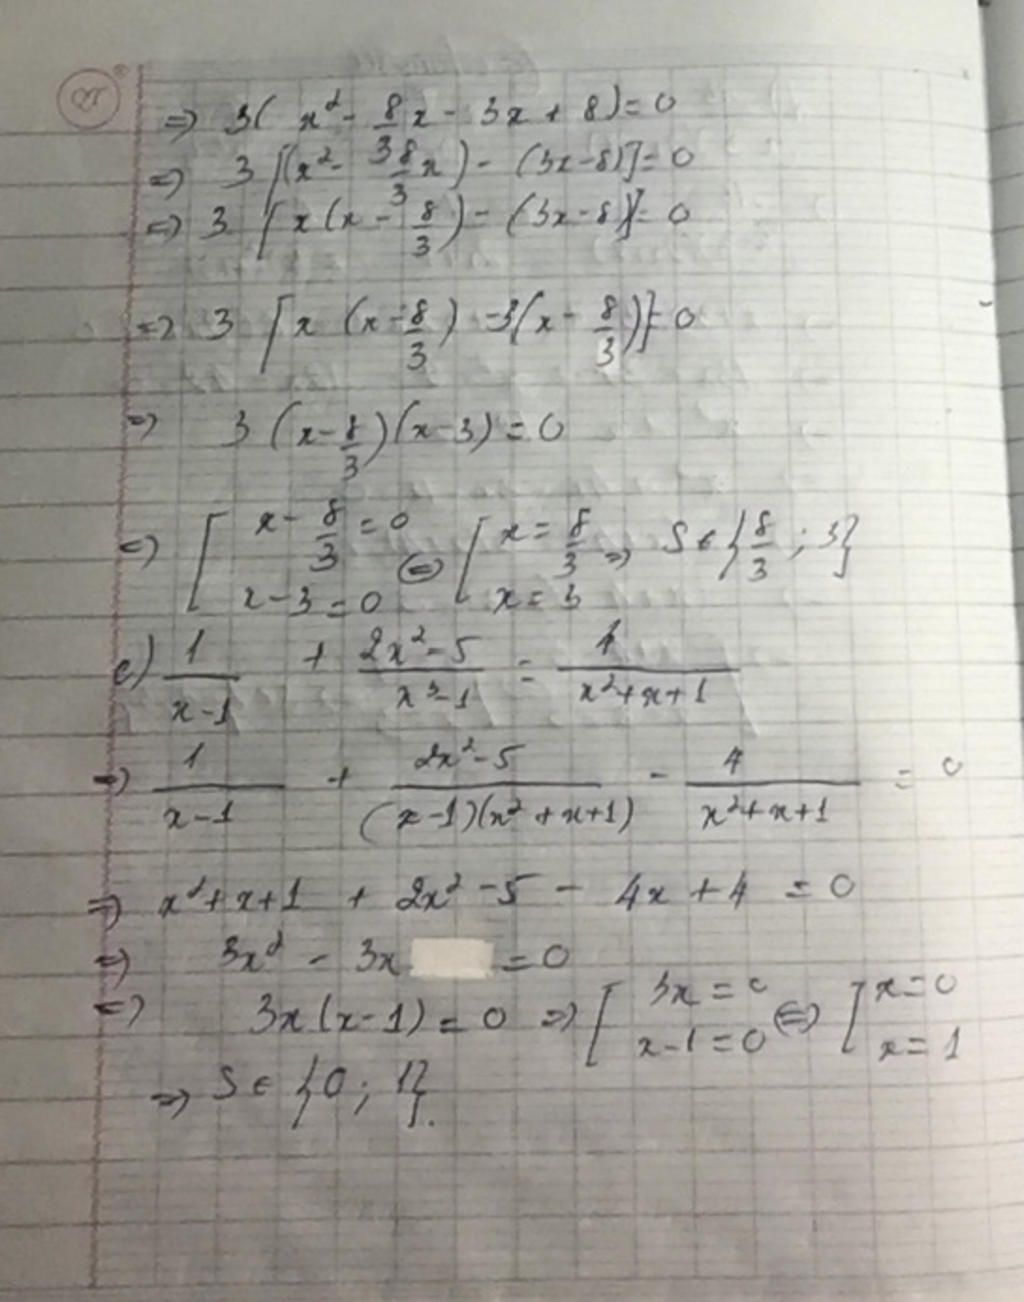 => 3( x² - 8/3 x - 3x + 8) = 0
=> 3 [(x² - 8/3 x) - (3x-8)] = 0
=> 3 [x(x - 8/3) - (3x-8)] = 0
=> 3 [x (x - 8/3) - 3(x - 8/3)] = 0
=> 3 (x - 8/3)(x-3) = 0
=> [ x - 8/3 = 0 ; x-3 = 0 <=> [ x = 8/3 ; x = 3 => S ∈ {8/3 ; 3}
e) 1/(x-1) + (2x²-5)/(x³-1) = 4/(x²+x+1)
=> 1/(x-1) + (2x²-5)/((x-1)(x²+x+1)) - 4/(x²+x+1) = 0
=> x²+x+1 + 2x²-5 - 4x+4 = 0
=> 3x² - 3x = 0
=> 3x(x-1) = 0 => [ 3x = 0 ; x-1 = 0 <=> [ x=0 ; x=1
=> S ∈ {0 ; 1}.